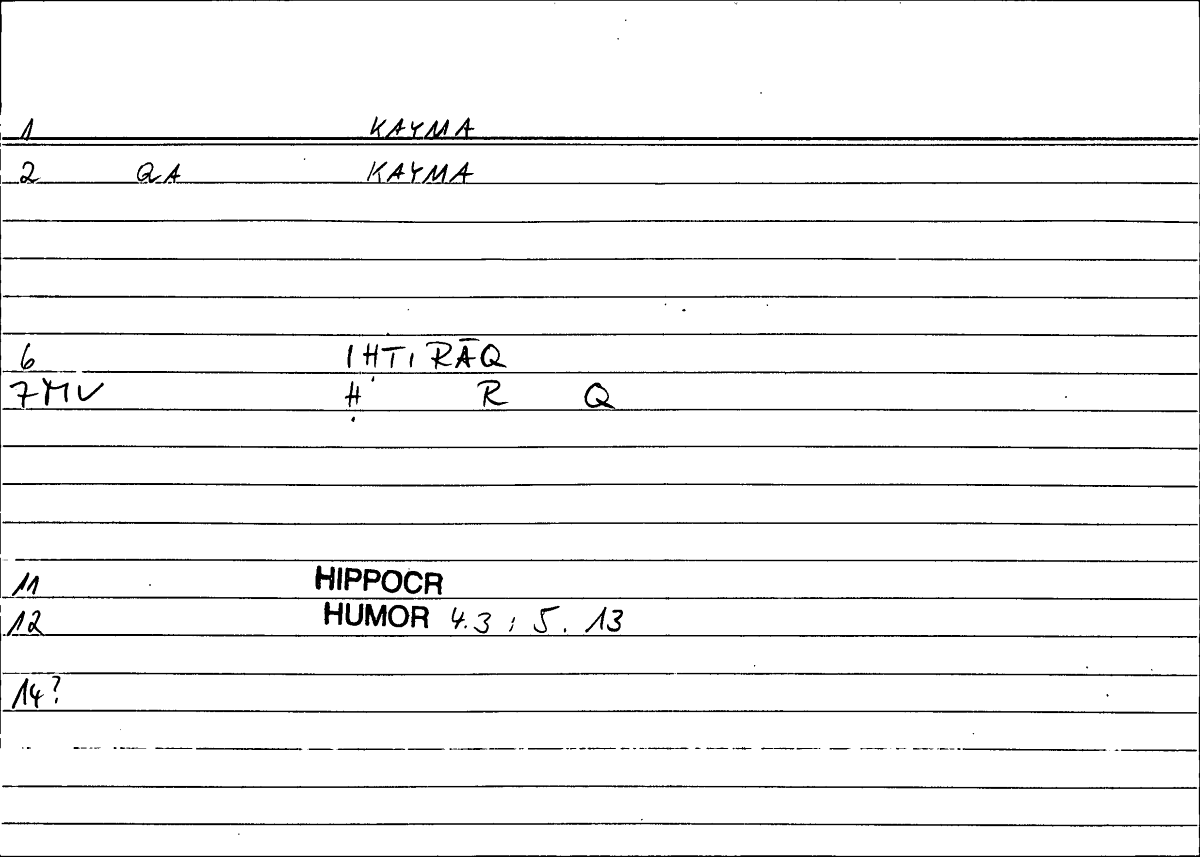 1 KAYMA
2 QA KAYMA
6 IḤTIRĀQ
7MV Ḥ R Q
11 HIPPOCR
12 HUMOR 4.3 ; 5. 13
14?